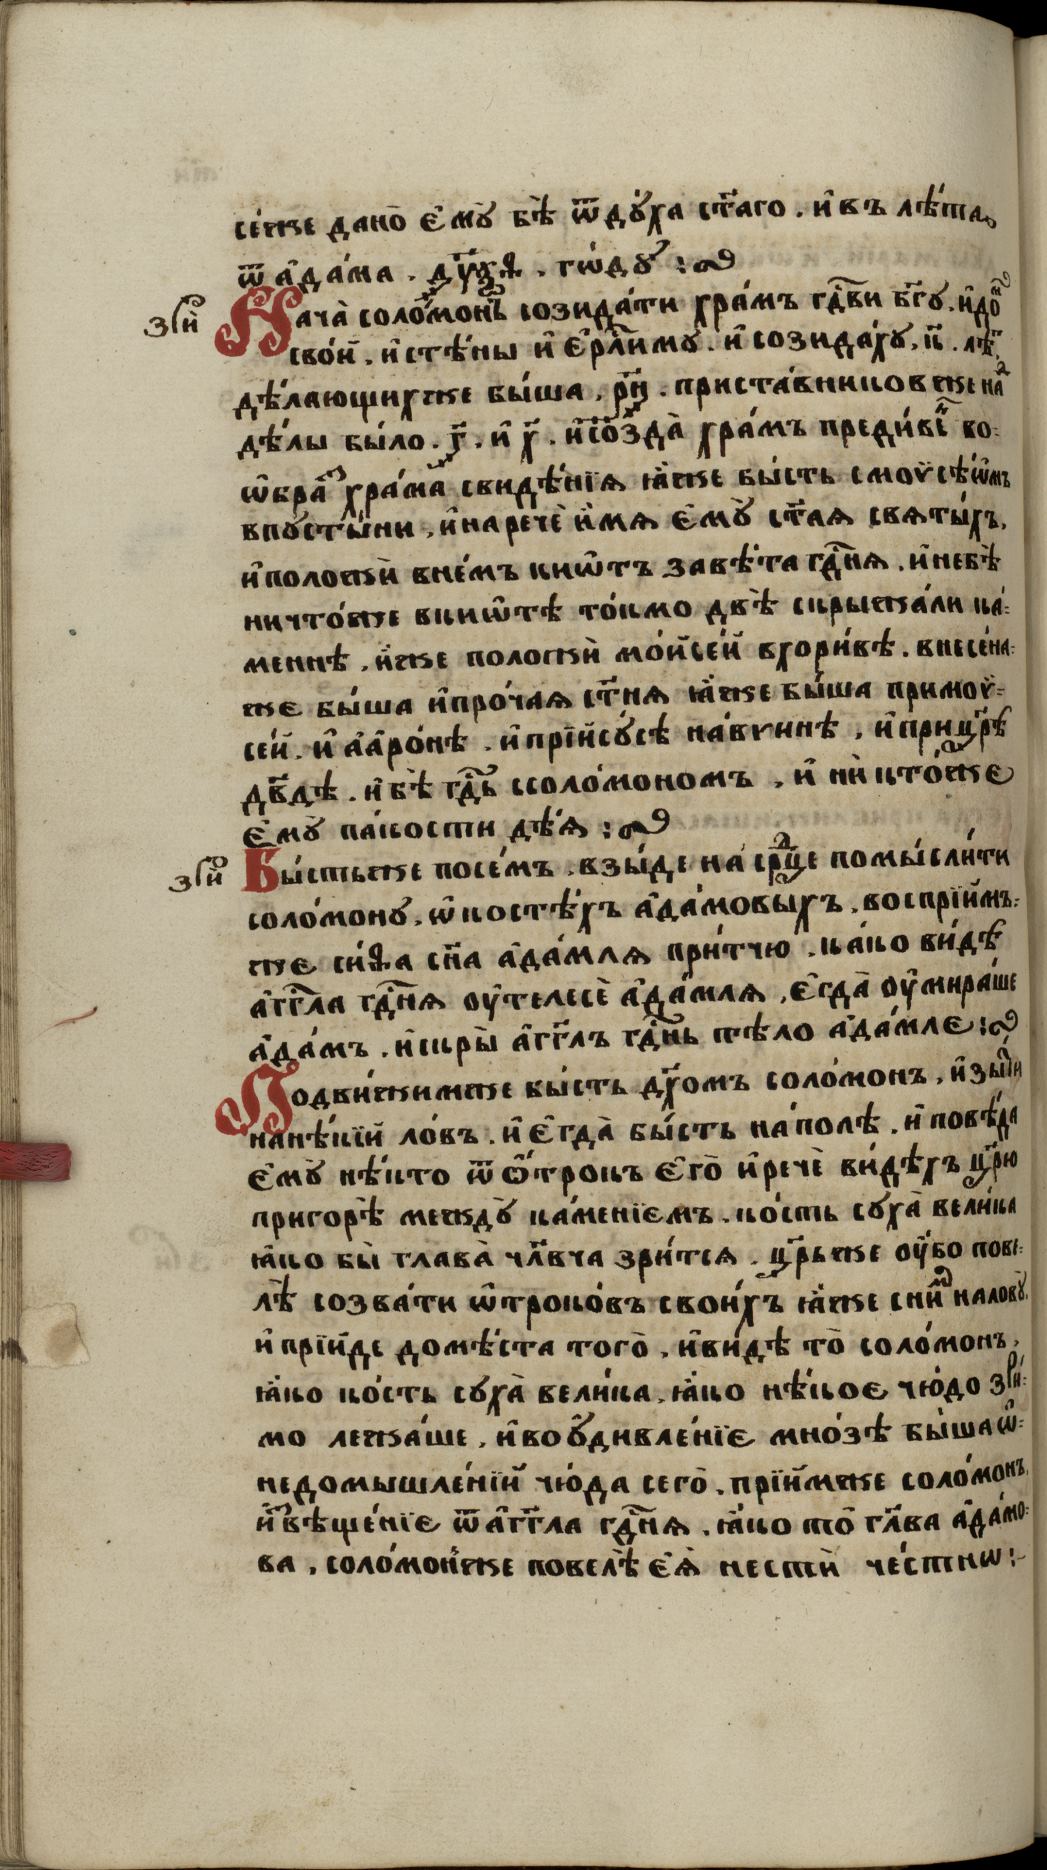 се́же дано̀ є҆мꙋ̀ бѣ̀ ѿ дꙋ́ха ст҃а́го . и҆ в лѣ́та
ѿ а҆да́ма . дц҃ѯѳ . гѡ́дꙋ :
зрѝ Нача̀ соломо́нъ созида́ти хра́мъ гдв҃и бг҃ꙋ . и҆ до́
сво́й . и҆ стѣ́ны и҆ є҆рл҃и́мꙋ . и҆ созида́хꙋ . к҃ . лѣ́
дѣ́лающихже бы́ша . рн҃ . приста́вниковже на
дѣ́лы бы́ло . г҃ . и҆ х҃ . и҆ созда̀ хра́мъ преди́в во
ѡ҆бра́ хра́ма свидѣ́нїѧ ꙗ҆́же бы́сть с моѵсѣ́ѡмъ
в пꙋсты́ни , и҆ наречѐ и҆́мѧ є҆мꙋ̀ ст҃а́ѧ свѧты́хъ ,
и҆ положѝ в не́мъ киѡ́тъ завѣ́та гдн҃ѧ . и҆ не бѣ̀
ничто́же в киѡ́тѣ то́кмо двѣ̀ скрыжа́ли ка́
меннѣ . и҆́же положѝ мо́йсей в хори́вѣ . внесе́на
же бы́ша и҆ про́чаѧ ст҃ы́нѧ ꙗ҆́же бы́ша при моѵ
се́й . и҆ а҆аро́нѣ . и҆ при і҆исꙋ́сѣ на́вгинѣ , и҆ при цр҃ѣ
дв҃дѣ . и҆ бѣ̀ гдⷭ҇ь с соло́мономъ , и҆ никто́же
є҆мꙋ̀ па́кости дѣ́ѧ :
зрѝ Бы́стьже по се́мъ . взы́де на́ срⷣце помы́слити
соло́монꙋ , ѡ҆ косте́хъ а҆да́мовыхъ , воспрїи́мъ
же си́ѳа сн҃а а҆да́млѧ при́тчю . ка́ко ви́дѣ
а҆́гг҃ла гдн҃ѧ ꙋ҆ телесѐ а҆да́млѧ , є҆гда̀ ᲂу҆мира́ше
а҆да́мъ . и҆ скры̀ а҆́гг҃лъ гдн҃ь тѣ́ло а҆да́мле :
Подви́жимже бы́сть дх҃омъ соло́монъ , и҆ зы́ди
на нѣ́кїй ло́въ . и҆ є҆гда̀ бы́сть на по́лѣ . и҆ повѣ́да
є҆мꙋ̀ нѣ́кто ѿ ѻ҆́трокъ є҆гѡ̀ и҆ речѐ ви́дѣхъ цр҃ю
при горѣ̀ междꙋ̀ ка́менїємъ . ко́сть сꙋха̀ вели́ка
ꙗ҆́ко бы̀ глава̀ чл҃вча зри́тсѧ . цр҃ьже ᲂу҆́бо пове
лѣ̀ созва́ти ѻ҆трокѡ́въ свои́хъ ꙗ҆́же с ни́м на ловꙋ̀ ,
и҆ прїи́де до мѣ́ста того̀ , и҆ ви́дѣ то̀ соло́монъ ,
ꙗ҆́ко ко́сть сꙋха̀ вели́ка , ꙗ҆́ко нѣ́коє чю́до зри́
мо лежа́ше , и҆ во ᲂу҆дивле́нїє мно́зѣ бы́ша ѡ҆
недомышле́нїй чю́да сего̀ . прїи́мже соло́монъ
и҆звѣще́нїє ѿ а҆́гг҃ла гдн҃ѧ , ꙗ҆́ко то̀ гл҃ва а҆да́мо
ва , соло́монже повелѣ̀ є҆ѧ̀ нестѝ че́стнѡ :